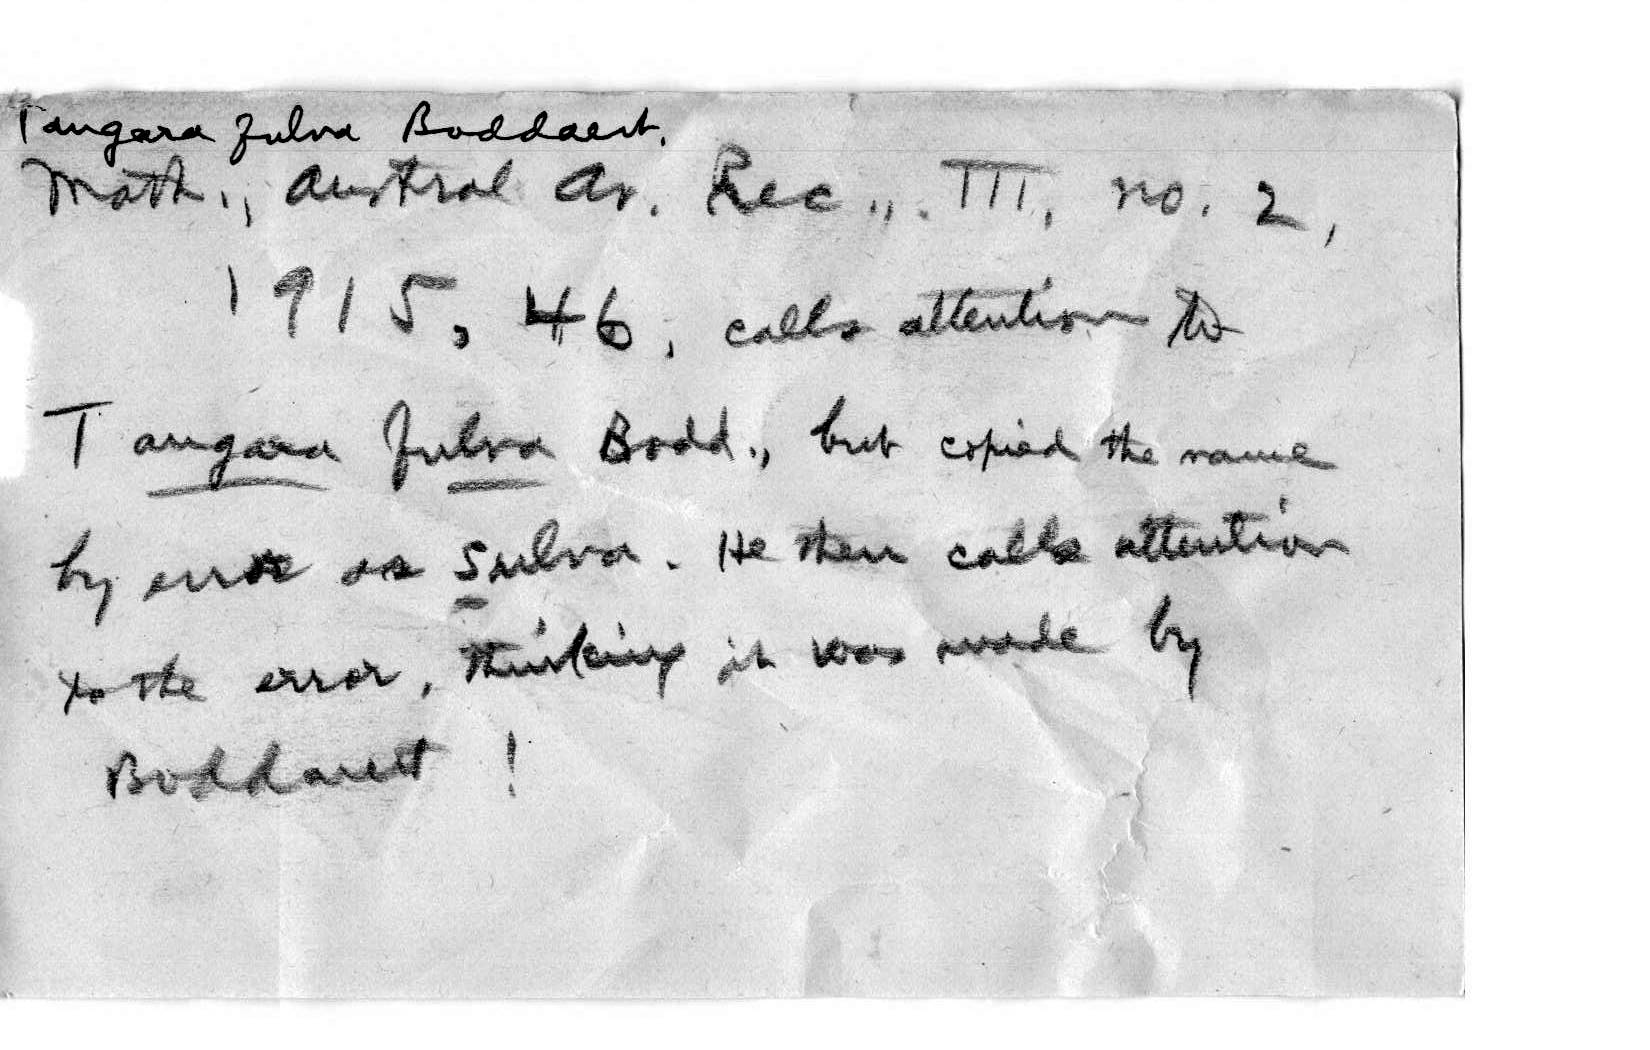 Tangara fulva Boddaert.
Math., Austral Av. Rec., III, no. 2,
1915, 46, calls attention to
Tangara fulva Bodd., but copied the name
by error as Sulva. He then calls attention
to the error, thinking it was made by
Boddaert!